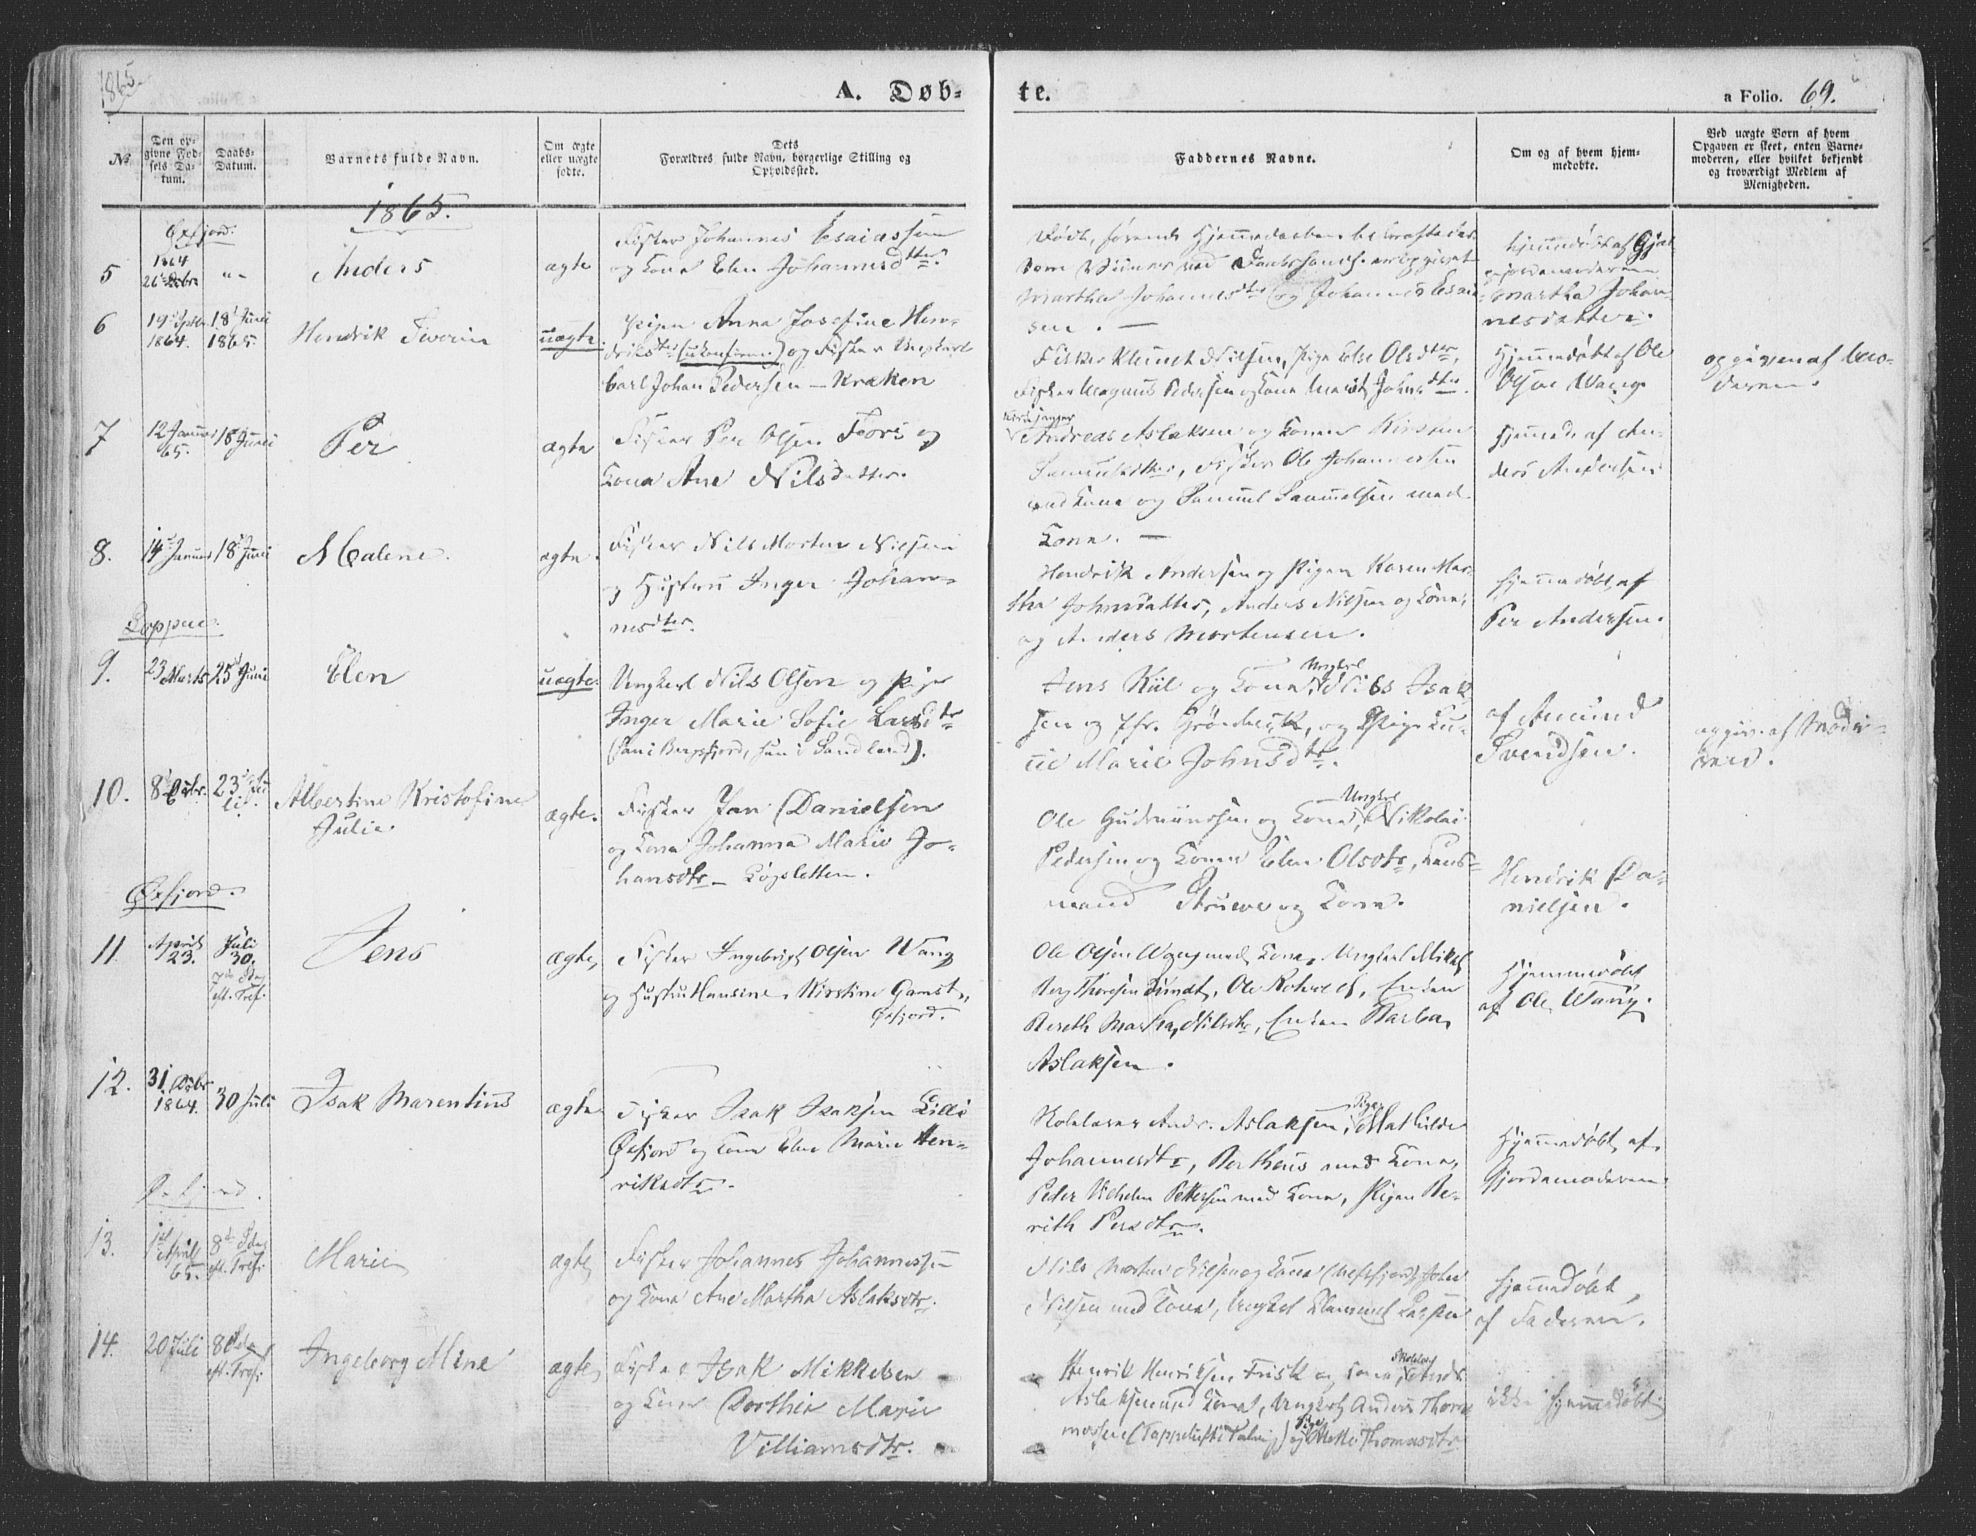 1865.
A. Døb-
te.
a Folio. 69.
No
Den op-
givne Fød-
sels Da-
tum.
Daabs-
Datum.
Barnets fulde Navn.
Om ægte
eller uægte
fødte.
Dets
Forældres fulde Navn, borgerlige Stilling og
Opholdssted.
Faddernes Navne.
Om og af hvem hjem-
medøbte.
Ved uægte Børn af hvem
Opgaven er skeet, enten Barne-
moderen, eller hvilket bekjendt
og troværdigt Medlem af
Menigheden.
1865.
Øxfjord.
5
1864
26 Decbr
"
Anders
ægte
Fisker Johannes Esaiassen
og Kona Elen Johannesdtr.
Martha Johannesdtr og Johannes Esaia-
sen. —
hjemmedøbt af Gjor-
jordemoderen
Martha Johan-
nesdatter.
6
19 Septbr
1864.
18 Juni
1865.
Hendrik Severin
uægte.
Pigen Anna Josefine Hen-
driksdtr (ukonfirm.) og Fisker Ungkarl
Carl Johan Pedersen — Kraken
Fisker Klemet Nilsen, Pige Else Olsdtr,
Fisker Magnus Pedersen og Kona Marit Johnsdtr.
Hjemmedøbt af Ole
Olsen Wang.
opgiven af Mo-
deren.
7
12 Januar
65.
18 Juni
Per
ægte
Fisker Per Olsen Fors og
Kona Ane Nilsdatter.
Andreas Aslaksen og Kone Kirsten
Samuelsdtter, Fisker Ole Johannesen
med Kona og Samuel Samuelsen med
Kona. —
Hjemmed. af An-
ders Andersen.
8.
14 Januar
18 Juni
Malene.
ægte.
Fisker Nils Morten Nilsen
og Hustru Inger Johan-
nesdtr.
Hendrik Andersen og Pigen Karen Mar-
tha Johnsdatter, Anders Nilsen og Kona,
og Anders Mortensen.
Hjemmedøbt af
Per Andersen.
Loppen.
9.
23 Marts
25 Juni
Elen
uægte.
Ungkarl Nils Olsen og Pige
Inger Marie Sofie Larsdtr
(han i Bergsfjord, hun i Sandland).
Jens Kiil og Kona, Ungkrl Nils Isak-
sen og Jfr. Grönbeck, og Pige Lu-
cie Marie Johnsdtr.
af Amund
Svendsen.
opgiv. af Mode-
ren.
10.
8 Octbr.
23 Ju-
li.
Albertine Kristofine
Julie.
ægte.
Fisker Jan Danielsen
og Kona Johanna Marie Jo-
hansdtr — Løgsletten.
Ole Gudmundsen og Kona, Ungkrl Nikolai
Pedersen og Kone Elen Olsdtr, Lens-
mand Struwe og Kona.
Hendrik Da-
nielsen.
Øxfjord.
11
April
23.
Juli
30.
7de Sdag
eft. Tref.
Jens
ægte,
Fisker Ingebrigt Olsen Wang
og Hustru Hansine Kirstine Gamst,
Øxfjord.
Ole Olsen Wang med Kone, Ungkarl Mikal
Berg Thoresen Bundt, Ole Roheleff, Enken
Bereth Martha Nilsdtr, Enken Barba
Aslaksen.
Hjemmedøbt
af Ole Wang.
12.
31 Decbr
1864.
30 Juli
Isak Marentius
ægte
Fisker Isak Isaksen Lille
Øxfjord og Kone Elen Marie Hen-
riksdtr.
Skolelærer Andr. Aslaksen, Pige Mathilde
Johannesdtr, Bertheus med Kona,
Peder Vilhelm Pettersen med Kona, Pigen Be-
rith Persdtr.
Hjemmedøbt af
Gjordemoderen.
Øxfjord.
13.
1 April
65.
8d Sdag
eft. Tref.
Marie
ægte
Fisker Johannes Johannessen
og Kona Ane Martha Aslaksdtr.
Nils Morten Nilsen og Kona, John
Nilsen med Kona, Ungkarl Klemmet Larsen
Hjemmedøbt
af Faderen.
14.
20 Juli
8d Sdag
eft. Tref.
Ingeborg Mine
ægte
Fisker Isak Mikkelsen
og Kone Dorthea Marie
Villiamsdtr.
Henrik Henriksen Frisk og Kona, Skolelær. Andr.
Aslaksen med Kona, Ungkarl Anders Thom-
massen (Tappeluft i Talvig) og Pige Mette Thomasdtr
ikke hjemmedøbt